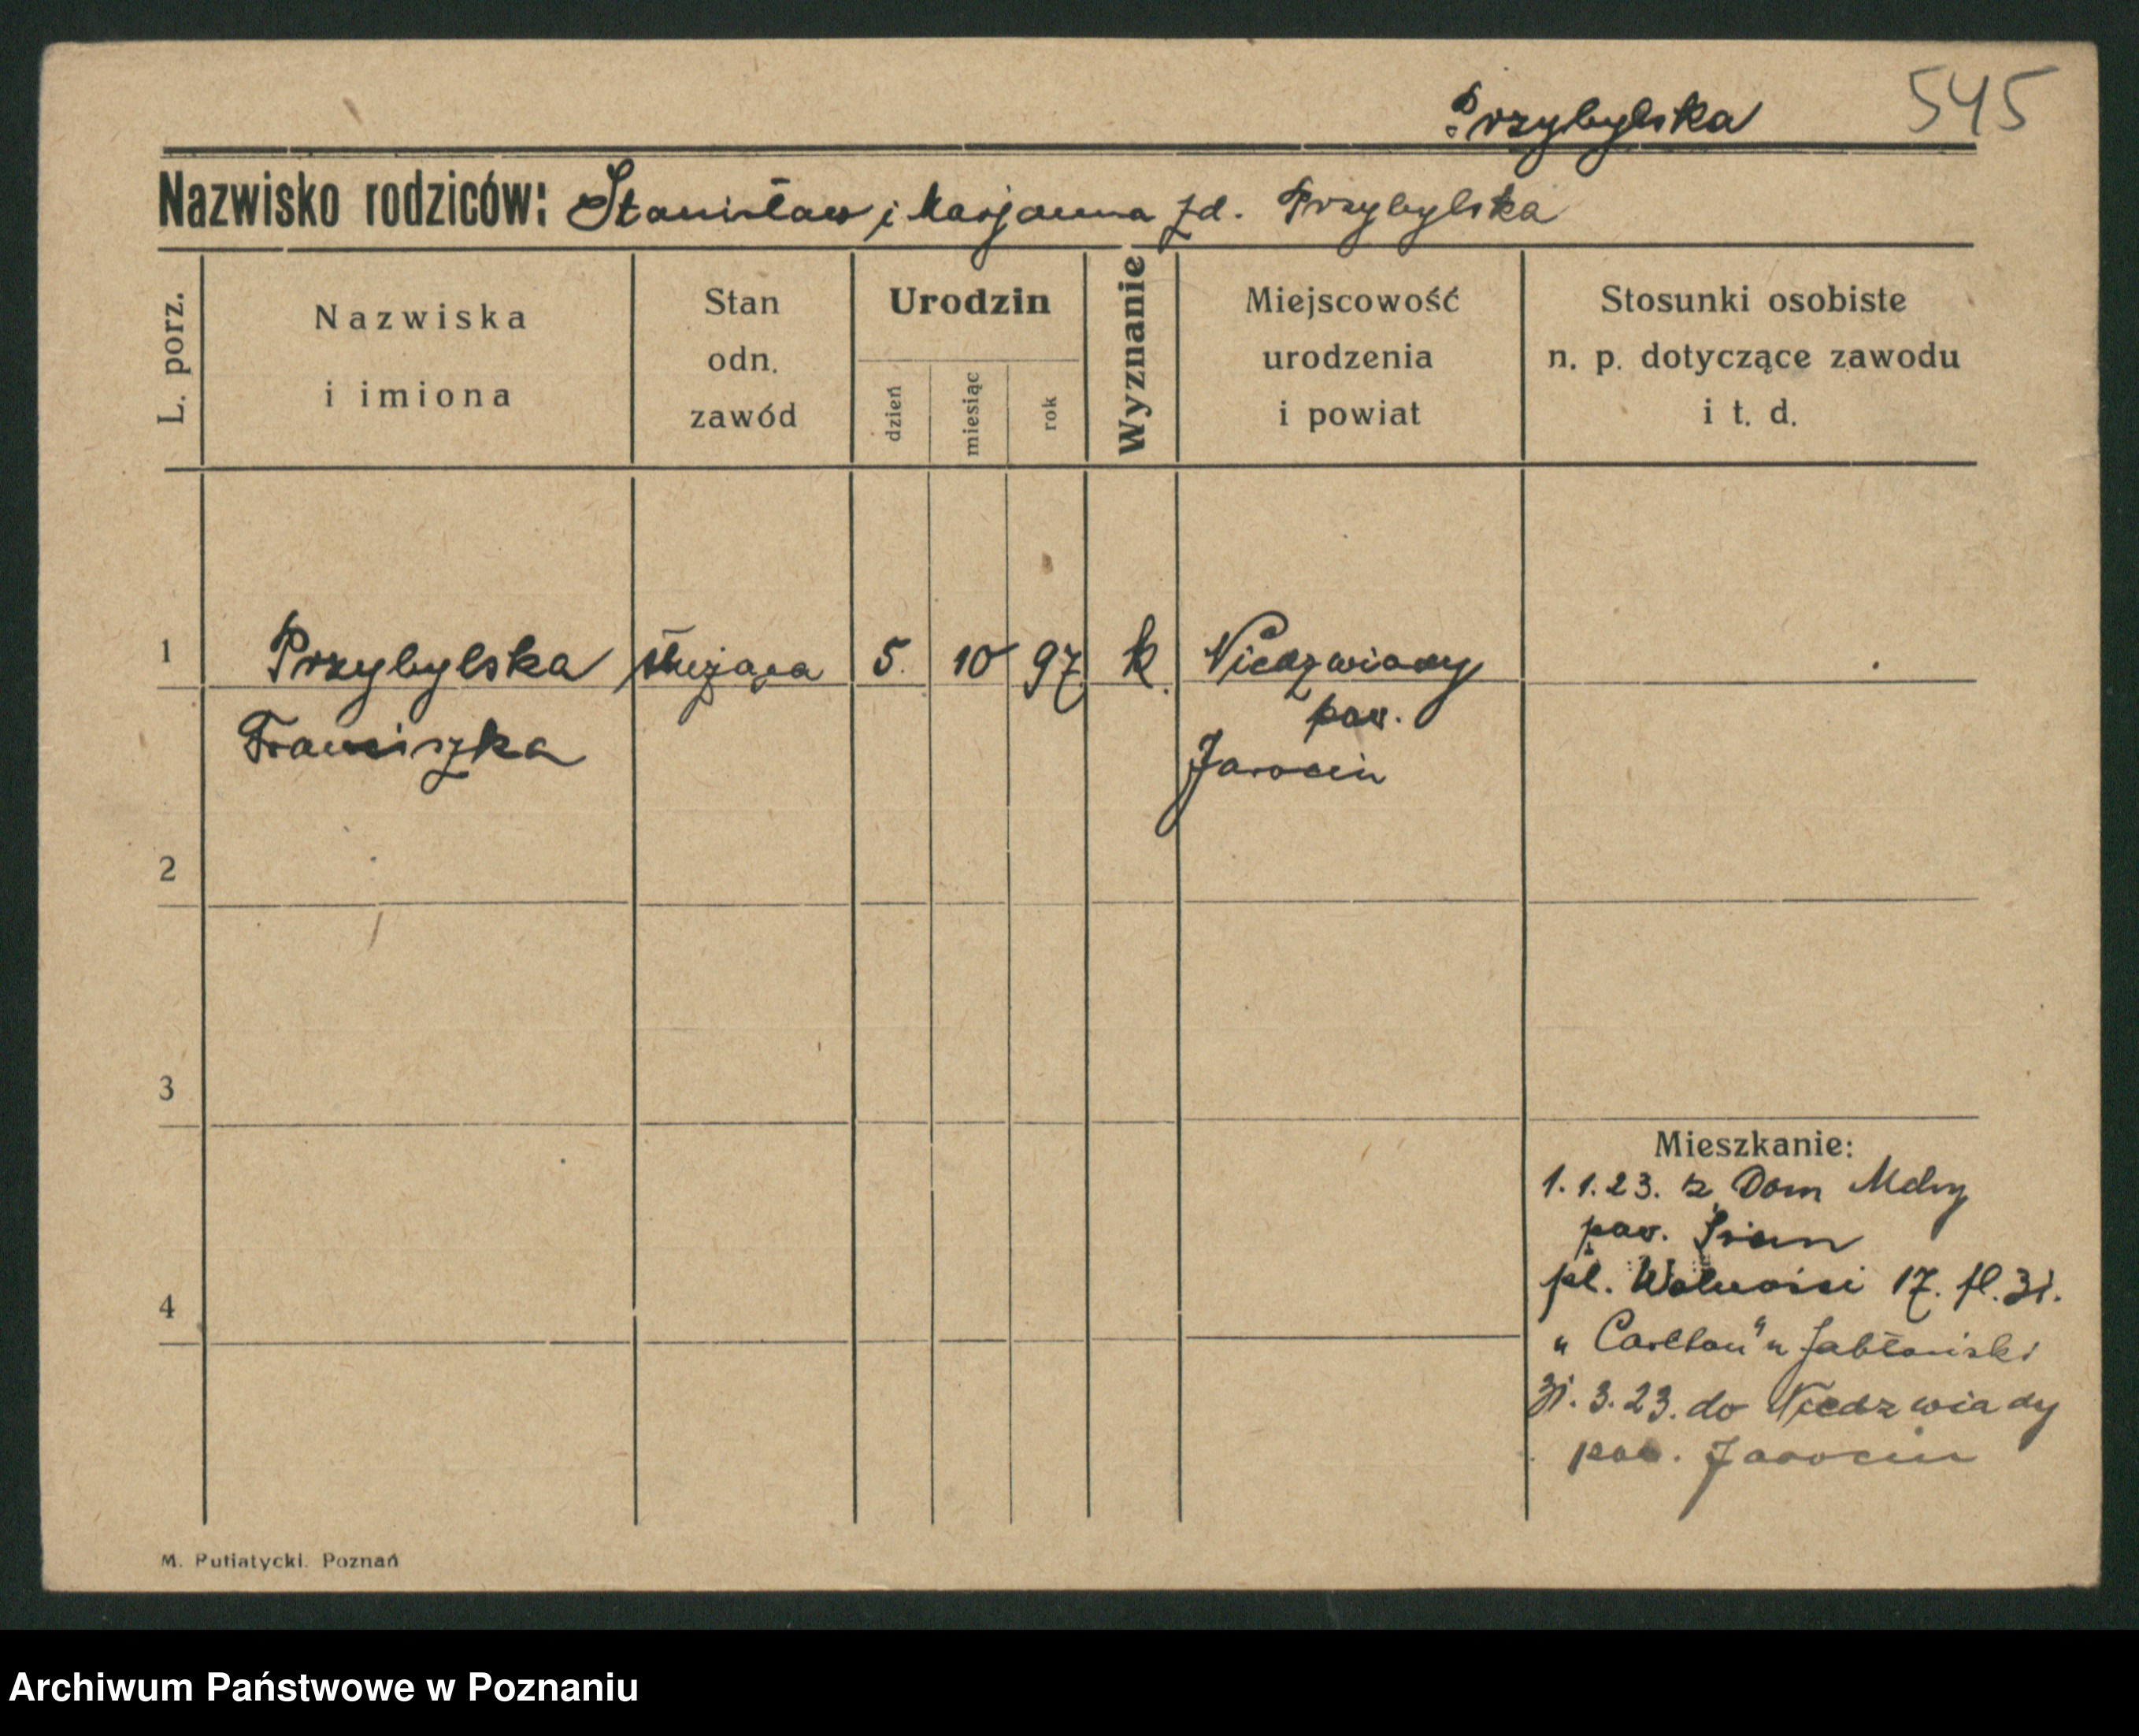 Przybylska 545
Nazwisko rodziców: Stanisław i Marjanna zd. Przybylska
L. porz.
Nazwiska
i imiona
Stan
odn.
zawód
Urodzin
dzień
miesiąc
rok
Wyznanie
Miejscowość
urodzenia
i powiat
Stosunki osobiste
n. p. dotyczące zawodu
i t. d.
1 Przybylska służąca 5. 10 97 k. Niedzwiady
pow.
Franciszka
Jarocin
2
3
Mieszkanie:
1.1.23. z Dom Mchy
pow. Śrem
pl. Wolności 17. fl. 31.
4
" Carlton" u Jabłoński
31.3.23. do Niedzwiady
pow. Jarocin
M. Putiatycki. Poznań
Archiwum Państwowe w Poznaniu